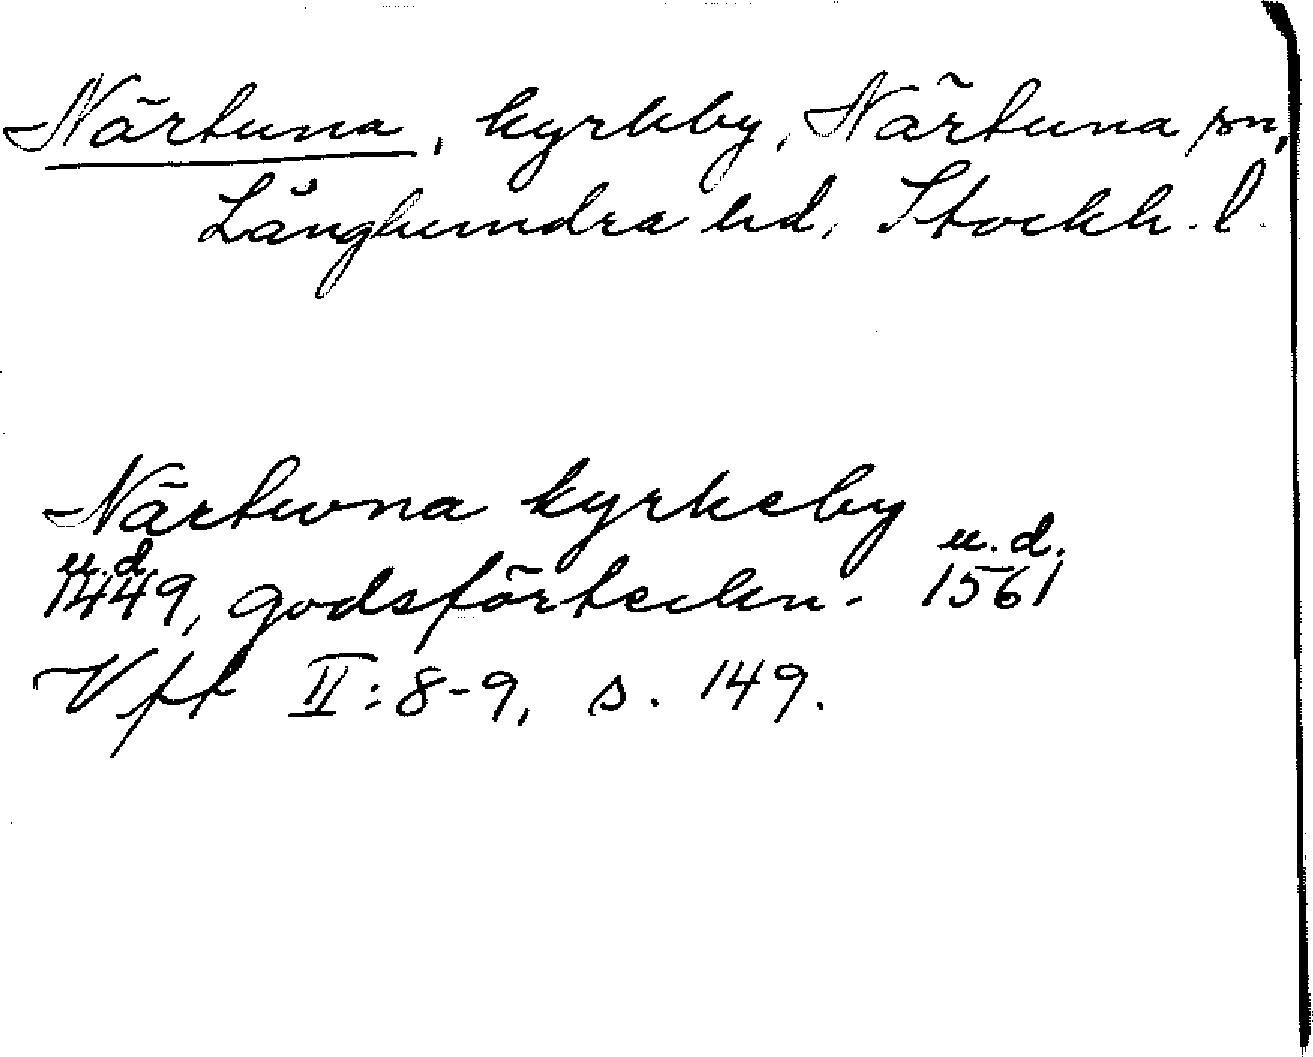 Närtuna, kyrkby, Närtuna sn,
Långhundra hd, Stockh. l.
Närtwna kyrkeby
u.d. u.d.
1449, godsförteckn. 1561
Vft II:8-9, s. 149.